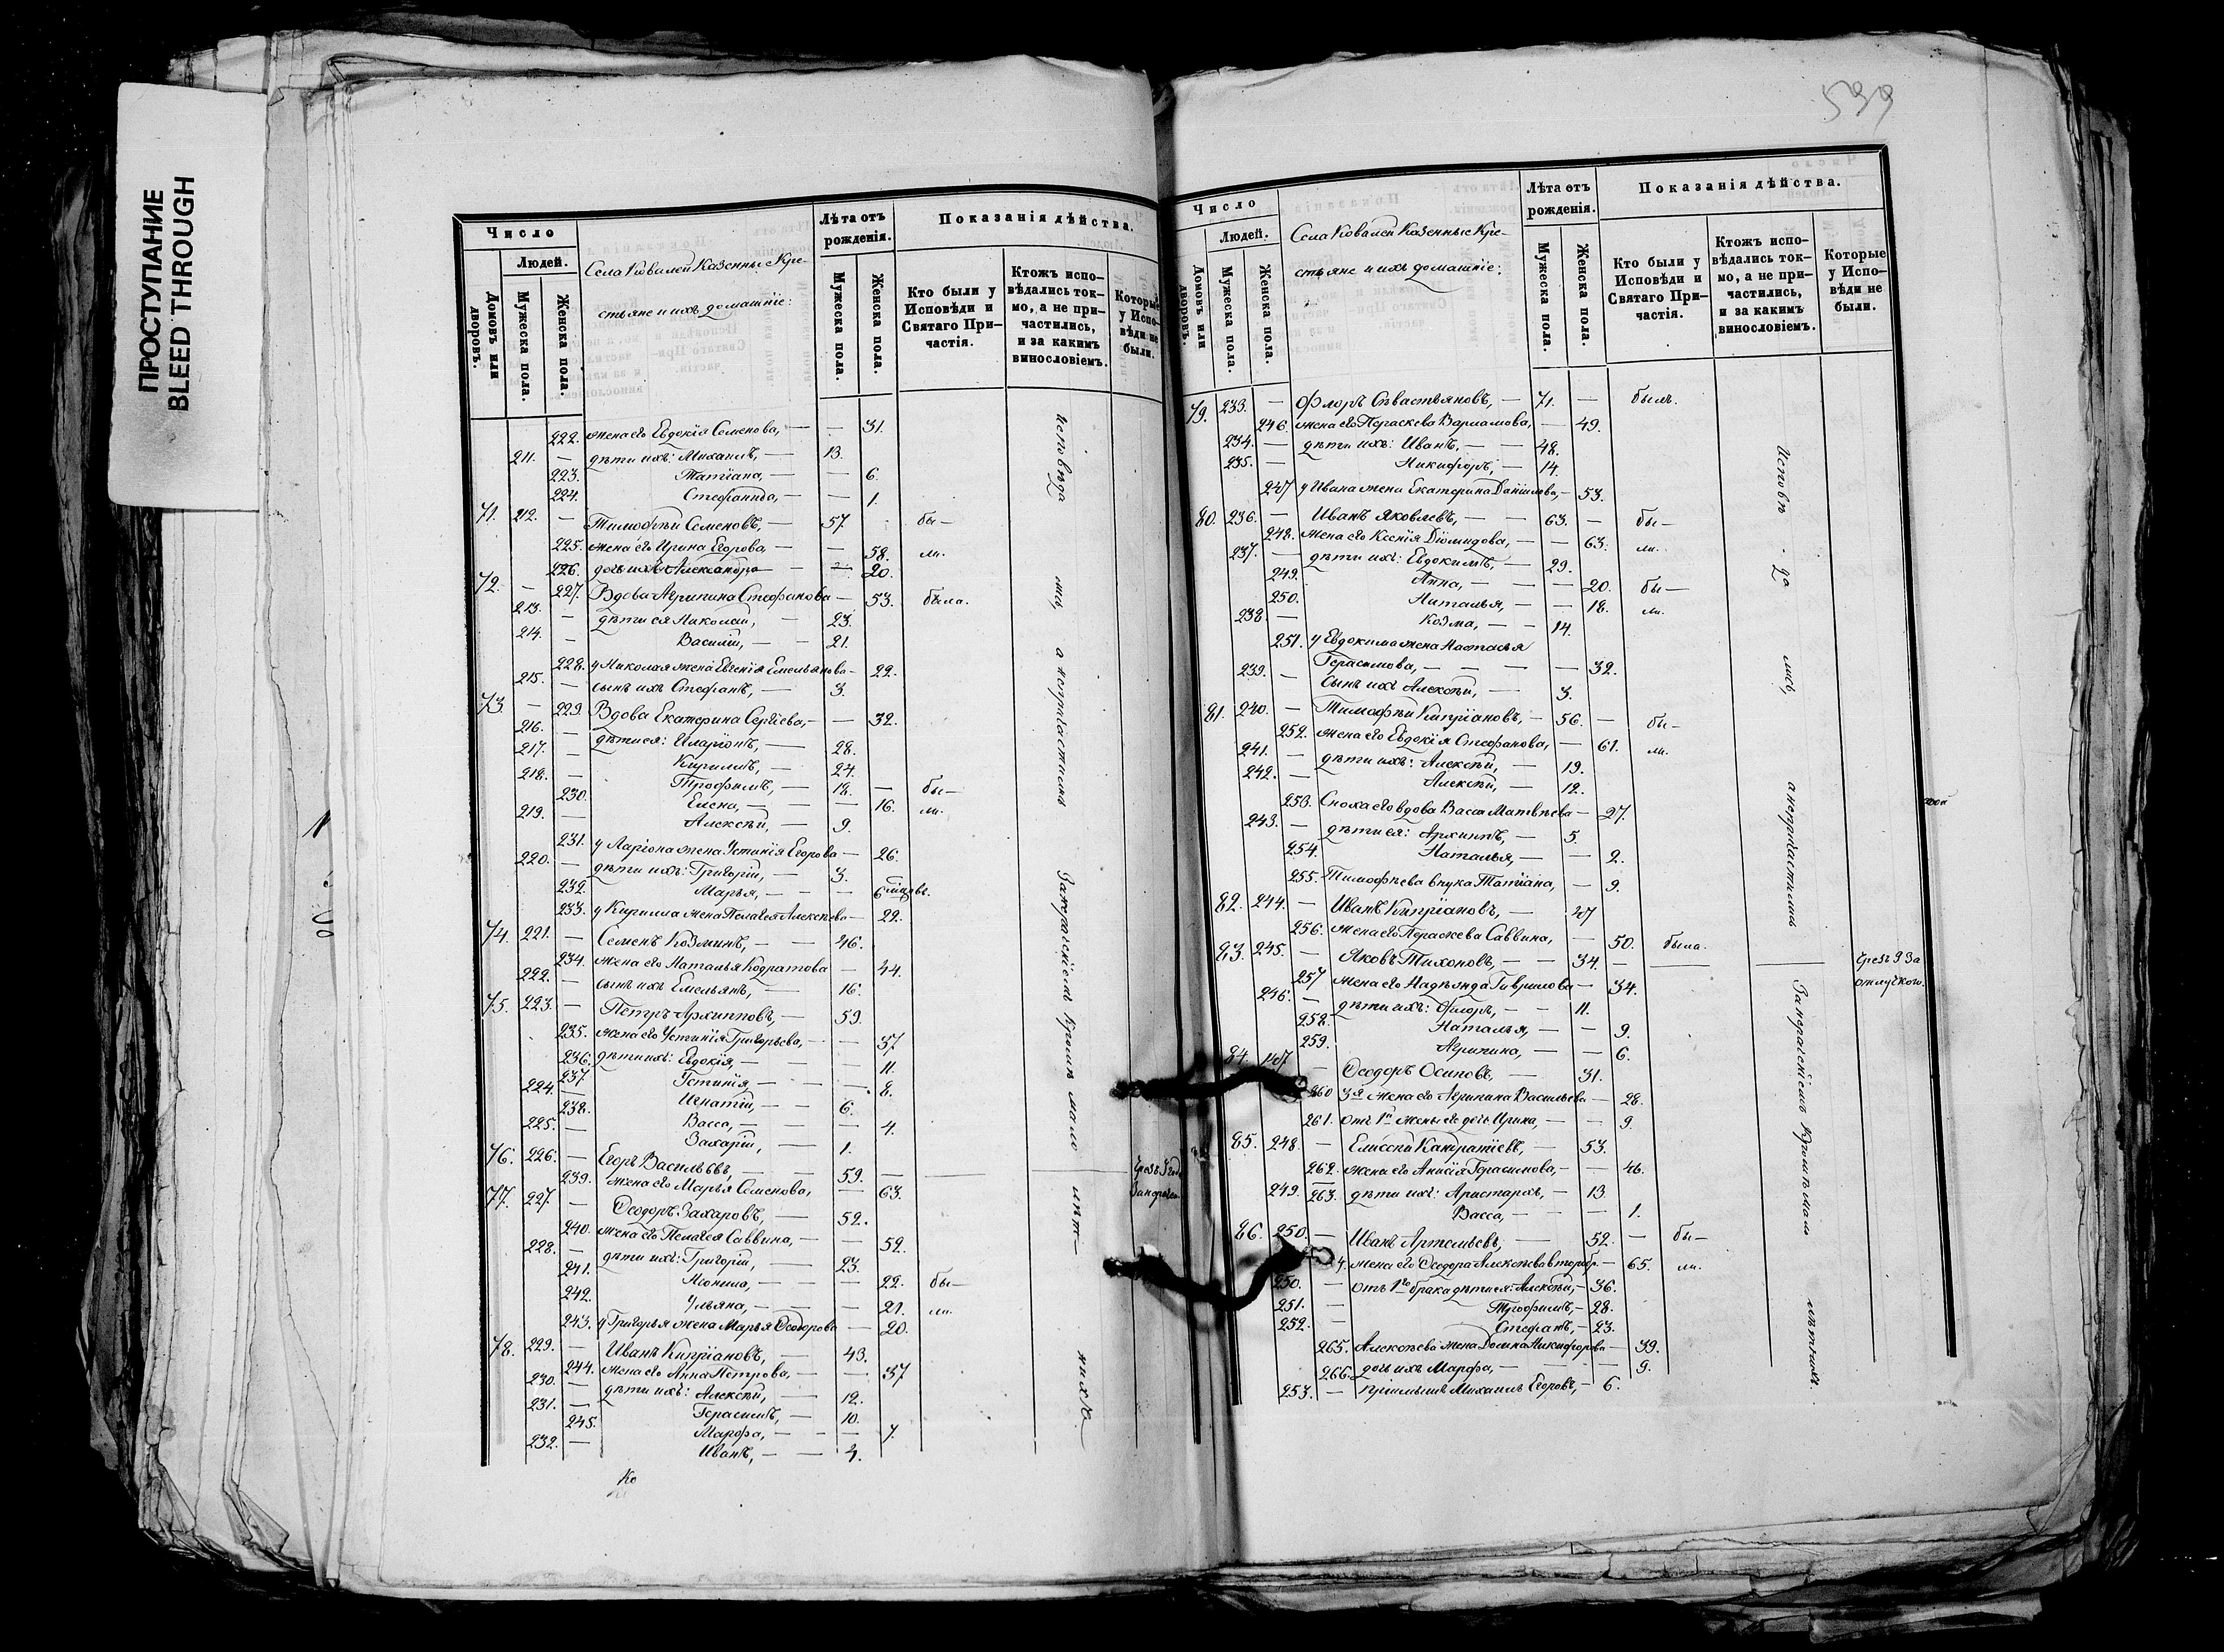 ПРОСТУПАНИЕ
BLEED THROUGH
Число
Людей.
Домовъ или дворовъ.
Мужеска пола.
Женска пола.
Села Ковалей Казенные Кре-
стьяне и ихъ домашніе:
Лѣта отъ рожденія.
Мужеска пола.
Женска пола.
Показанія дѣйства.
Кто были у Исповѣди и Святаго При-частія.
Ктожъ испо-вѣдались ток-мо, а не при-частились, и за какимъ винословіемъ.
Которые у Испо-вѣди не были.
222. жена его Евдокія Семенова, — — 31.
211. — дѣти ихъ: Михаилъ, — 13.
223. Татіана, — — 6.
224. Стефанида, — — 1.
71. 212. — Тимофѣй Семеновъ, — 57. бы—
225. жена его Ирина Егорова — — 58. ли.
226. дочь ихъ Александра — — 20.
72. — 227. Вдова Агрипина Стефанова — 53. была.
213. — дѣти ея Николай, — 23.
214. — Василій, — — 21.
228. у Николая жена Евгенія Емельянова — 22.
215. — сынъ ихъ Стефанъ, — 3.
73. — 229. Вдова Екатерина Сергіева, — — 32.
216. — дѣти ея: Иларіонъ, — 28.
217. — Кирилъ, — 24.
218. — Трофимъ, — 18. — бы—
230. Елена, — — 16. ли.
219. — Алексѣй, — 9.
231. у Ларіона жена Устинія Егорова — 26.
220. — дѣти ихъ: Григорій, — 3.
232. Марья, — — — 6 мцовъ.
233. у Кирилла жена Пелагея Алексѣева — 22.
74. 221. — Семенъ Козминъ, — — 46.
234. жена его Наталья Кодратова — 44.
222. — сынъ ихъ Емельянъ, — 16.
75. 223. — Петръ Архипповъ, — 59.
235. жена его Устинія Григорьева, — — 57
236. дѣти ихъ: Евдокія, — — 11.
237. Устинія, — — 8.
224. — Игнатій, — — 6.
238. Васса, — — 4.
225. — Захарій, — 1.
76. 226. — Егоръ Васильевъ, — — 59. —
239. жена его Марья Семенова, — 63.
77. 227. — Ѳеодоръ Захаровъ, — 52.
240. жена его Пелагея Саввина, — — 52.
228. — дѣти ихъ: Григорій, — 23.
241. Неонила, — — — 22. бы—
242. Ульяна, — — — 21. ли.
243. у Григорья жена Марья Ѳеодорова — 20.
78. 229. — Иванъ Кипріановъ, — 43.
244. жена его Анна Петрова, — — 37
230. — дѣти ихъ: Алексѣй, — 12.
231. — Герасимъ, — 10.
245. Марфа, — — — 7.
232. — Иванъ, — — 4.
Ко
исповѣда
лись,
а непричастились
кромѣ мало
лѣт—
нихъ
539
Число
Людей.
Домовъ или дворовъ.
Мужеска пола.
Женска пола.
Села Ковалей Казенные Кре-
стьяне и ихъ домашніе:
Лѣта отъ рожденія.
Мужеска пола.
Женска пола.
Показанія дѣйства.
Кто были у Исповѣди и Святаго При-частія.
Ктожъ испо-вѣдались ток-мо, а не при-частились, и за какимъ винословіемъ.
Которые у Испо-вѣди не были.
79. 233. — Флоръ Севастьяновъ, — 71. — былъ.
246. жена его Параскева Варламова, — 49.
234. — дѣти ихъ: Иванъ, — — 48.
235. — Никифоръ, — 14.
247 у Ивана жена Екатерина Даніилова, — 53.
80. 236. — Иванъ Яковлевъ, — — 63. — бы—
248. жена его Ксенія Діомидова, — — 63. ли.
237. — дѣти ихъ: Евдокимъ, — 29.
249. Анна, — — — 20. бы—
250. Наталья, — — 18. ли.
238. — Козма, — — 14.
251. у Евдокима жена Настасья
Герасимова, — — — — 32.
239. — сынъ ихъ Алексѣй, — 3.
81. 240. — Тимофѣй Кипріановъ, — 56. — бы—
252. жена его Евдокія Стефанова, — 61. ли.
241. — дѣти ихъ: Алексѣй, — 19.
242. — Алексѣй, — 12.
253. Сноха его вдова Васса Матвѣева — 27.
243. — дѣти ея: Архиппъ, — 5.
254. Наталья, — — 2.
255. Тимофѣева внука Татіана, — 9.
82. 244. — Иванъ Кипріановъ, — 47
256. жена его Параскева Саввина, — 50. была.
83. 245. — Яковъ Тихоновъ, — — 34. —
257 жена его Надежда Гаврилова — 34.
246. — дѣти ихъ: Флоръ, — — 11.
258. Наталья, — — 9.
259. Агрипина, — — 6.
84. 247. — Ѳеодоръ Осиповъ, — 31.
260 3я жена его Агрипина Васильева — 28.
261. Отъ 1й жены его дочь Ирина, — — 9.
85. 248. — Елисей Кандратіевъ, — 53.
262. жена его Анисія Герасимова, — — 46.
249. 263. дѣти ихъ: Аристархъ, — 13
Васса, — — — 1.
86. 250. — Иванъ Артемьевъ, — 52. — бы—
4. жена его Ѳеодора Алексѣева второбр. — 65. ли.
250. — Отъ 1го брака дѣти ея: Алексѣй, — 36.
251. — Трофимъ, — 28.
252. — Стефанъ, — 23.
265. Алексѣева жена Домна Никифорова — 39.
266. дочь ихъ Марфа, — — 9.
253. — Пріемышъ Михаилъ Егоровъ, — 6.
Исповѣ-
да
лись,
а непричастились
За нераченіемъ Кромѣ мало
лѣтнихъ.
Чрезъ За
отлучкою.